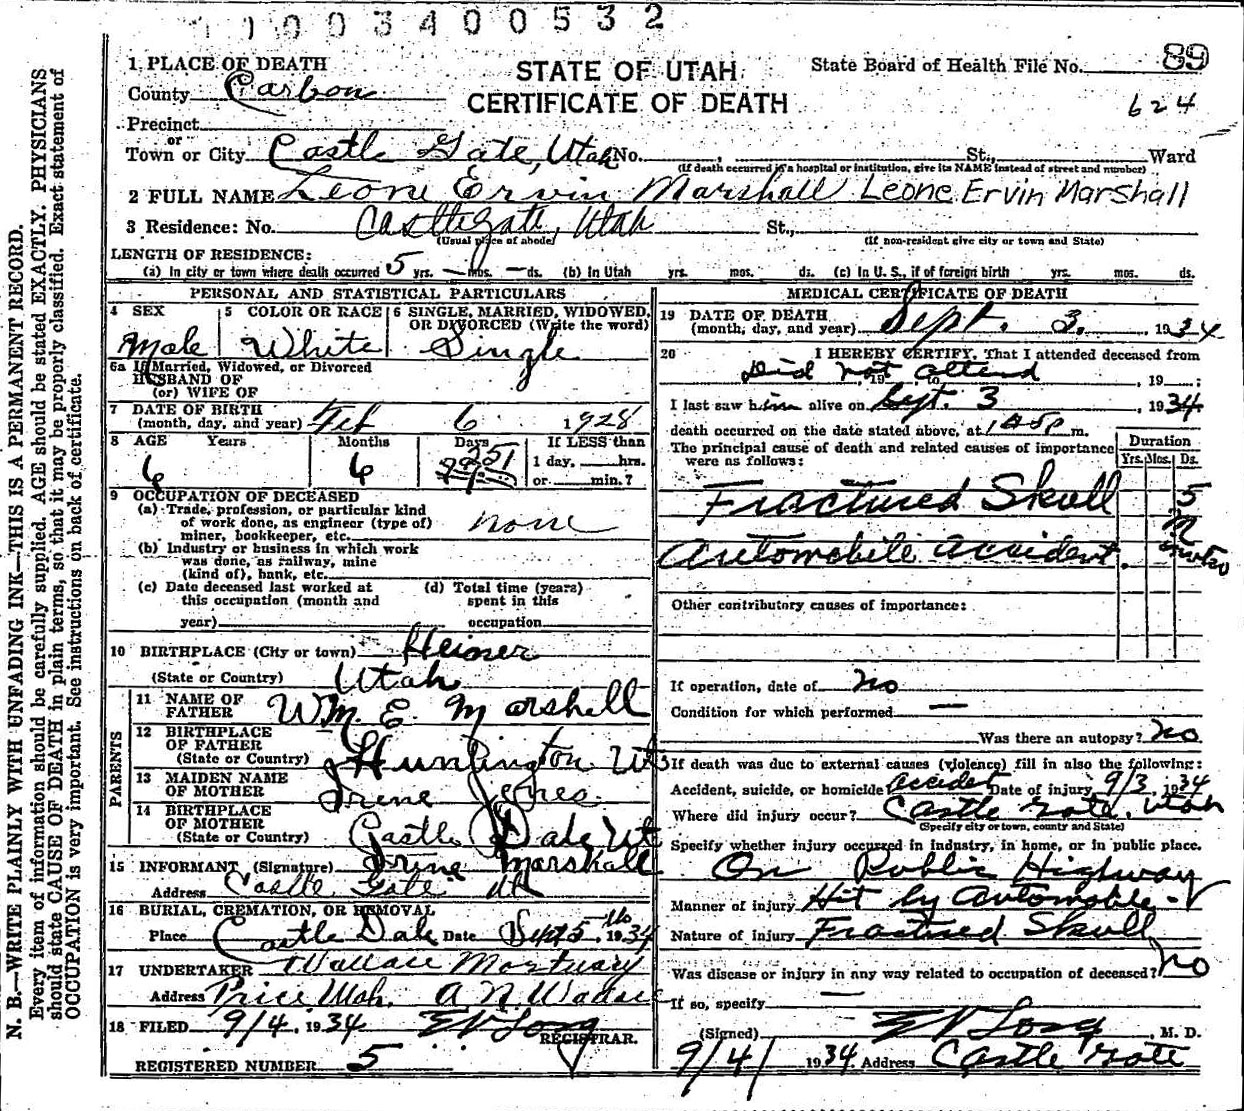 1003400532
1 PLACE OF DEATH
STATE OF UTAH
CERTIFICATE OF DEATH
State Board of Health File No. 89
624
County Carbon
Precinct
or
Town or City Castle Gate, Utah No. , St., Ward
(If death occurred in a hospital or institution, give its NAME instead of street and number)
2 FULL NAME Leone Ervin Marshall Leone Ervin Marshall
3 Residence: No. Castlegate, Utah St.,
(Usual place of abode) (If non-resident give city or town and State)
LENGTH OF RESIDENCE:
(a) In city or town where death occurred 5 yrs. — mos. — ds. (b) In Utah yrs. mos. ds. (c) In U. S., if of foreign birth yrs. mos. ds.
PERSONAL AND STATISTICAL PARTICULARS
4 SEX 5 COLOR OR RACE 6 SINGLE, MARRIED, WIDOWED, OR DIVORCED (Write the word)
Male White Single
6a If Married, Widowed, or Divorced
HUSBAND OF
(or) WIFE OF
7 DATE OF BIRTH
(month, day, and year) Feb 6 1928
8 AGE Years Months Days If LESS than
6 6 1 day, hrs.
or min.?
9 OCCUPATION OF DECEASED
(a) Trade, profession, or particular kind
of work done, as engineer (type of)
miner, bookkeeper, etc. none
(b) Industry or business in which work
was done, as railway, mine
(kind of), bank, etc.
(c) Date deceased last worked at (d) Total time (years)
this occupation (month and spent in this
year) occupation
10 BIRTHPLACE (City or town) Heiner
(State or Country) Utah
PARENTS
11 NAME OF
FATHER Wm. E. Marshall
12 BIRTHPLACE
OF FATHER
(State or Country) Huntington Ut
13 MAIDEN NAME
OF MOTHER Irene Jones
14 BIRTHPLACE
OF MOTHER
(State or Country) Castle Dale Ut
15 INFORMANT (Signature) Irene Marshall
Address Castle Gate Ut
16 BURIAL, CREMATION, OR REMOVAL
Place Castle Dale Date Sept 5 th 1934
17 UNDERTAKER Wallace Mortuary
Address Price Utah. A. N. Wallace
18 FILED 9/4 1934 E V Long
REGISTRAR.
REGISTERED NUMBER 5
MEDICAL CERTIFICATE OF DEATH
19 DATE OF DEATH
(month, day, and year) Sept. 3. 1934
20 I HEREBY CERTIFY, That I attended deceased from
Did not attend 19 to , 19 ;
I last saw him alive on Sept. 3 , 1934.
death occurred on the date stated above, at m.
The principal cause of death and related causes of importance
were as follows:
Duration
Yrs. Mos. Ds.
Fractured Skull 5
Automobile accident.
Other contributory causes of importance:
If operation, date of no
Condition for which performed —
Was there an autopsy? no
If death was due to external causes (violence) fill in also the following:
Accident, suicide, or homicide accident Date of injury 9/3, 1934
Where did injury occur? Castle Gate, Utah
(Specify city or town, county and State)
Specify whether injury occurred in industry, in home, or in public place.
On Public Highway
Manner of injury Hit by Automobile -
Nature of injury Fractured Skull
Was disease or injury in any way related to occupation of deceased? no
If so, specify —
(Signed) E V Long M. D.
9/4/ 1934 Address Castle Gate
N. B.—WRITE PLAINLY WITH UNFADING INK—THIS IS A PERMANENT RECORD.
Every item of information should be carefully supplied. AGE should be stated EXACTLY. PHYSICIANS
should state CAUSE OF DEATH in plain terms, so that it may be properly classified. Exact statement of
OCCUPATION is very important. See instructions on back of certificate.